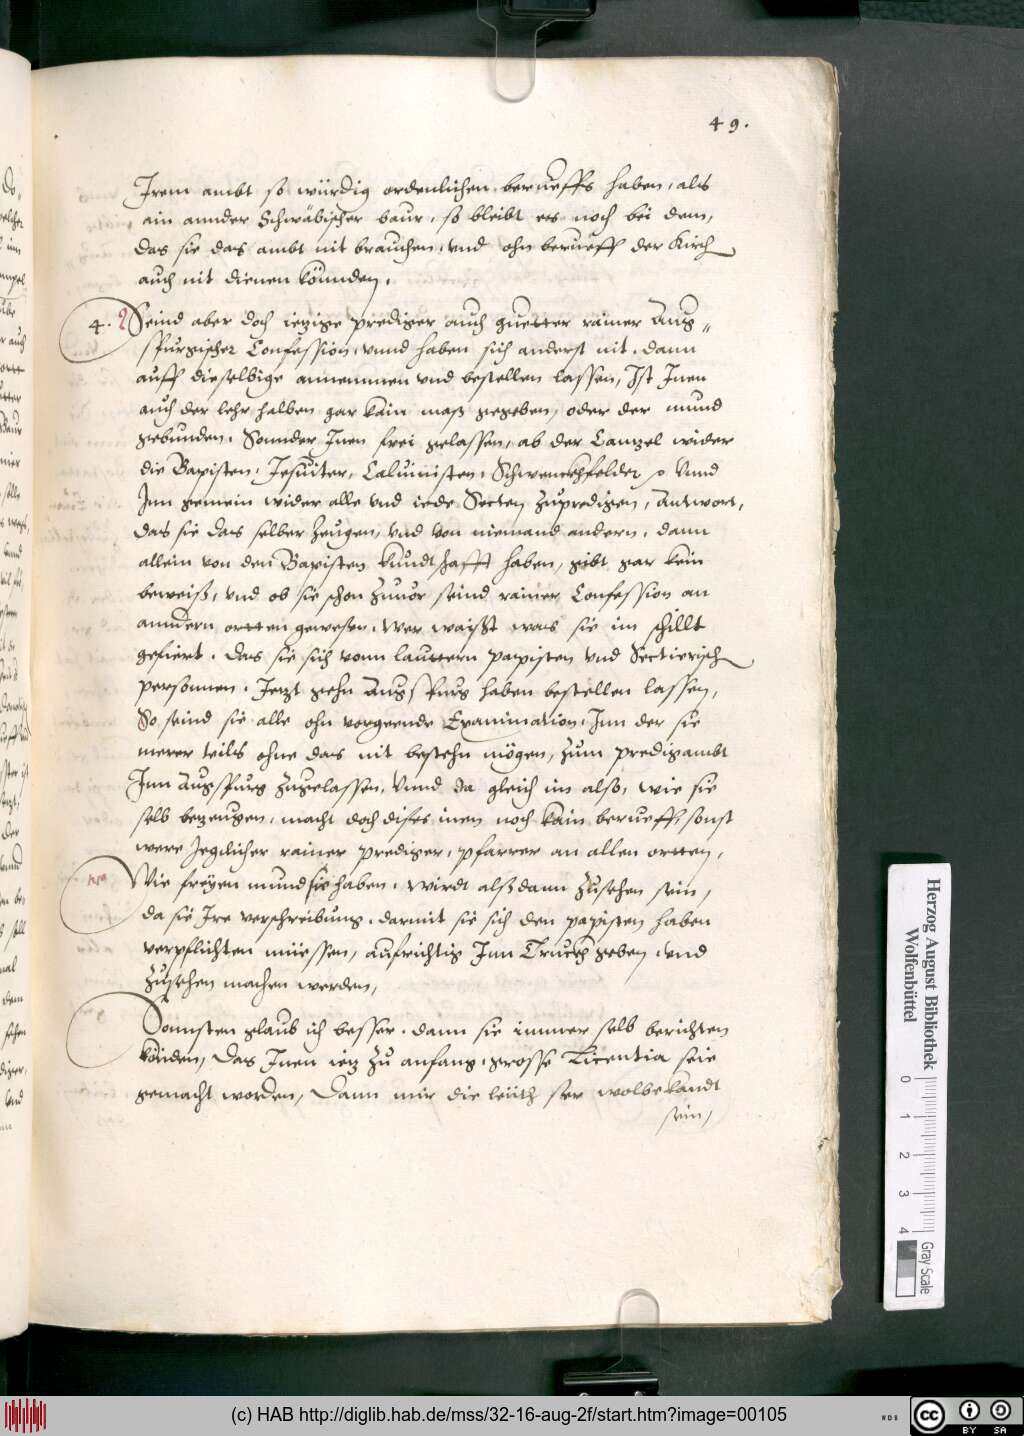 49.
Irem ambt so würdig ordenlichen berueffs haben, als
ain annder Schwäbischer baur, so bleibt es noch bei dem,
das sie das ambt nit brauchen, vnd ohn berueff der Kirch
auch nit dienen könnden.
4. Seind aber doch ietzige prediger auch guetter rainer Aug„
spurgischer Confession, vnnd haben sich anderst nit, dann
auff dieselbige annemmen vnd bestellen lassen, Ist Inen
auch der lehr halben gar kain maß gegeben, oder der mund
gebunden, Sonnder Inen frei gelassen, ab der Canzel wider
die Bapisten, Jesuiter, Caluinisten, Schwenckhfelder vnnd
Inn gemein wider alle vnd iede Secten zupredigen, Antwort,
das sie das selber zeugen, vnd von niemand andern, dann
allein von den Bapisten kundtschafft haben, gibt gar kein
beweiß, vnd ob sie schon zuuor seind rainer Confession an
andern ortten gewesen, wer waißt was sie im schillt
gefiert, das sie sich vonn lauttern papisten vnd Sectierisch
personnen, Jetzt gehn Augspurg haben bestellen lassen,
So seind sie alle ohn vorgeende Examination, Inn der sie
merer teils ohne das nit bestehn mögen, zum predigambt
Inn Augspurg zugelassen, Vnnd da gleich im also, wie sie
selb bezeugen, macht doch dises inen noch kain berueff, sonst
were Jegclicher rainer prediger, pfarrer an allen ortten,
Wie freyen mund sie haben, wirdt alß dann zusehen sein,
da sie Ire verschreibung, darmit sie sich den papisten haben
verpflichten müessen, aufrichtig Inn Truckh geben, vnd
zusehen machen werden,
Sonnsten glaub ich besser, dann sie immer selb berichten
könden, Das Inen ietz zu anfang, grosse Licentia seie
gemacht worden, Dann mir die leüth ser wolbekandt
sein,
Herzog August Bibliothek
Wolfenbüttel
0 1 2 3 4
Gray Scale
(c) HAB http://diglib.hab.de/mss/32-16-aug-2f/start.htm?image=00105
WDB
cc BY SA